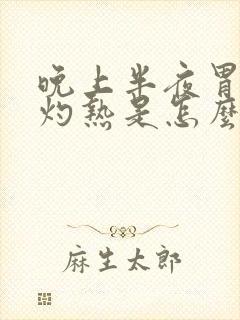 晚上半夜胃
灼熱是怎麼
麻生太郎